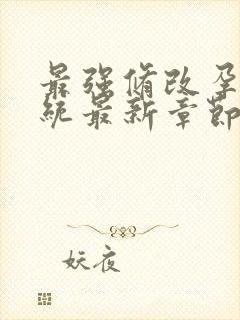 最强脩改孕
统最新章节
妖夜